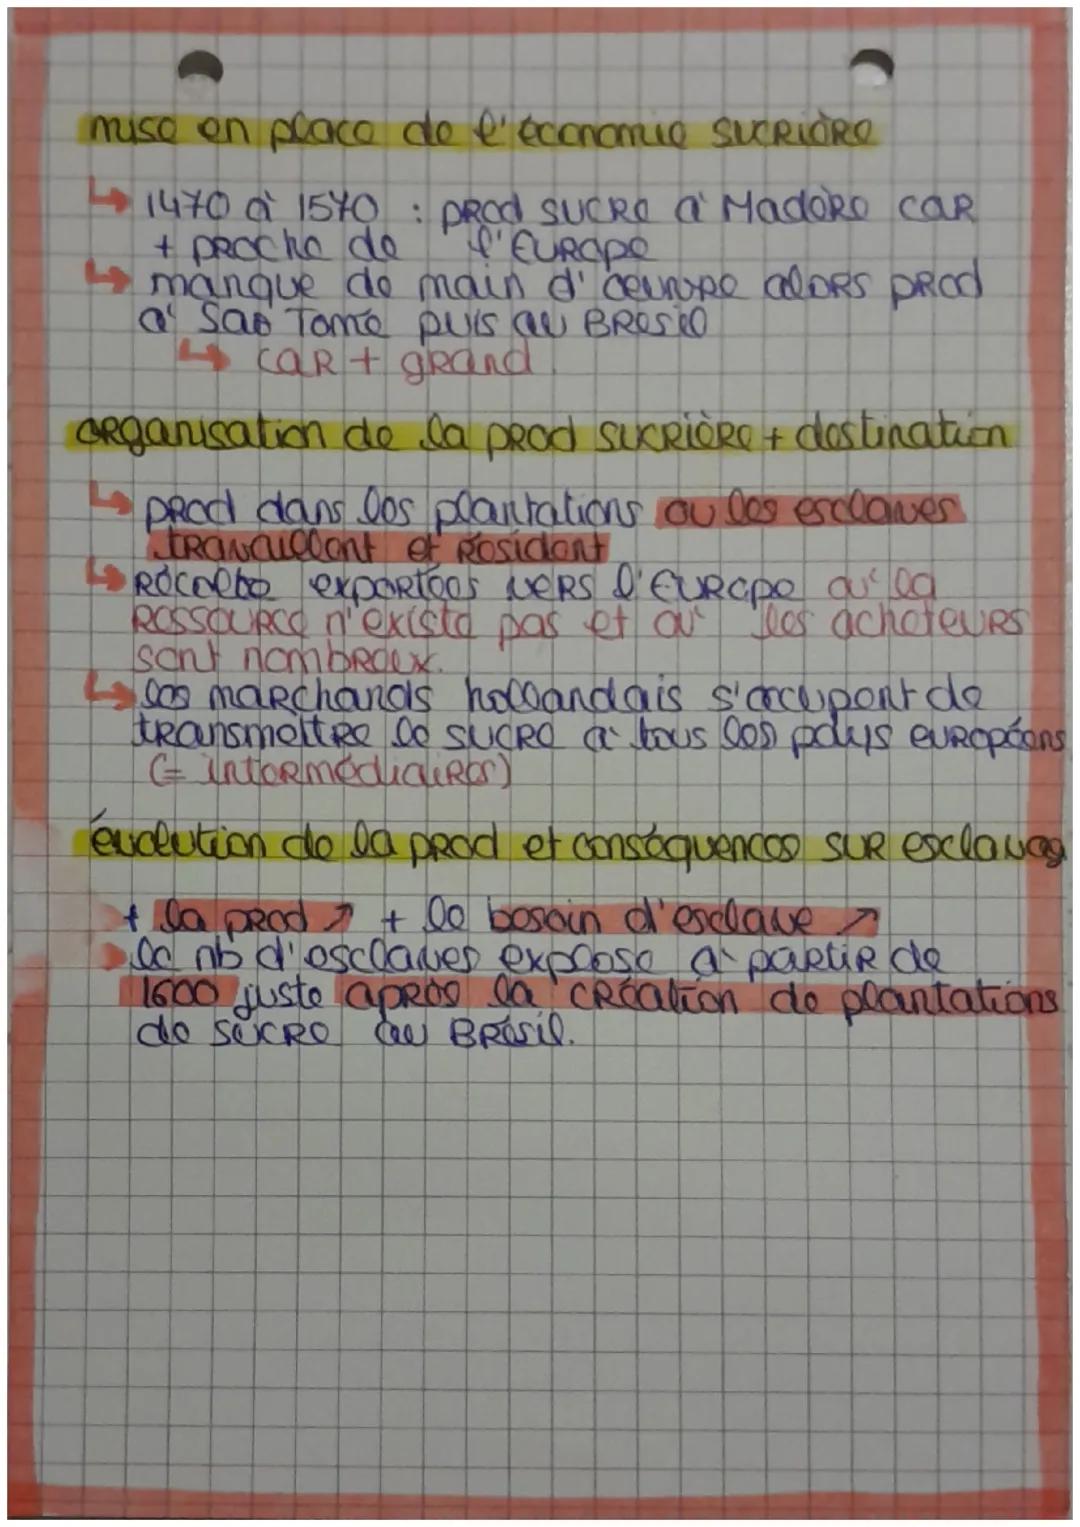 mise en place de l'économie sucrière
↳ 1470 à 1570 : prod sucre à Madère car
+ proche de l'Europe
↳ manque de main d'oeuvre alors prod
à Sao Tomé puis au Brésil
↳ car + grand
organisation de la prod sucrière + destination
↳ prod dans les plantations ou les esclaves
travaillent et résident
↳ Récolte exportées vers l'Europe où la
ressource n'existe pas et où les acheteurs
sont nombreux.
↳ les marchands hollandais s'occupent de
transmettre le sucre à tous les pays européens
(= intermédiaires)
évolution de la prod et conséquences sur esclaves
+ la prod ↗ + le besoin d'esclave ↗
le nb d'esclaves explose à partir de
1600 juste après la création de plantations
de sucre au Brésil.